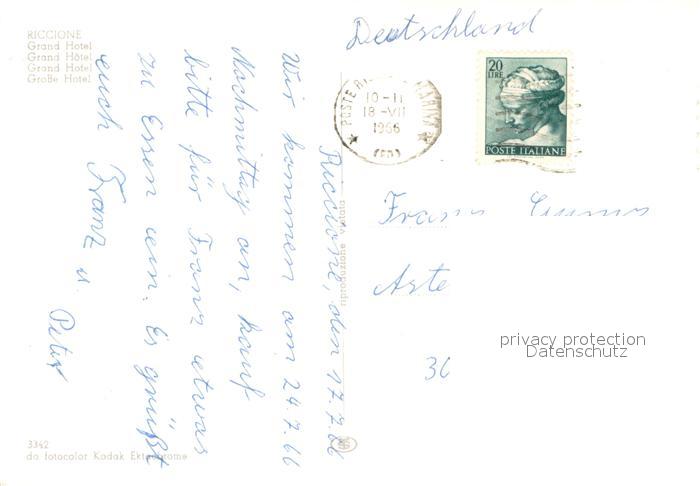 RICCIONE
Grand Hotel
Grand Hôtel
Grand Hotel
Große Hotel
Deutschland
POSTE
10-11
18-VII
1966
20
LIRE
POSTE ITALIANE
Riccione, den 17.7.66
Wir kommen am 24.7.66
Nachmittag an, kauf
bitte für Franz etwas
zu Essen ein. Es grüßt
euch Franz u.
Peter
riproduzione vietata
privacy protection
Datenschutz
36
3342
da fotocolor Kodak Ektachrome